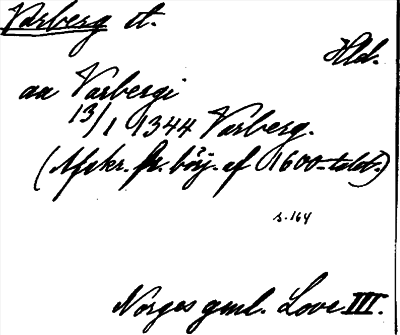 Varberg st.
Hld.
aa Varbergi
13/1 1344 Varberg.
(Afskr. fr. börj. af 1600-talet)
s. 164
Norges gml. Love III.